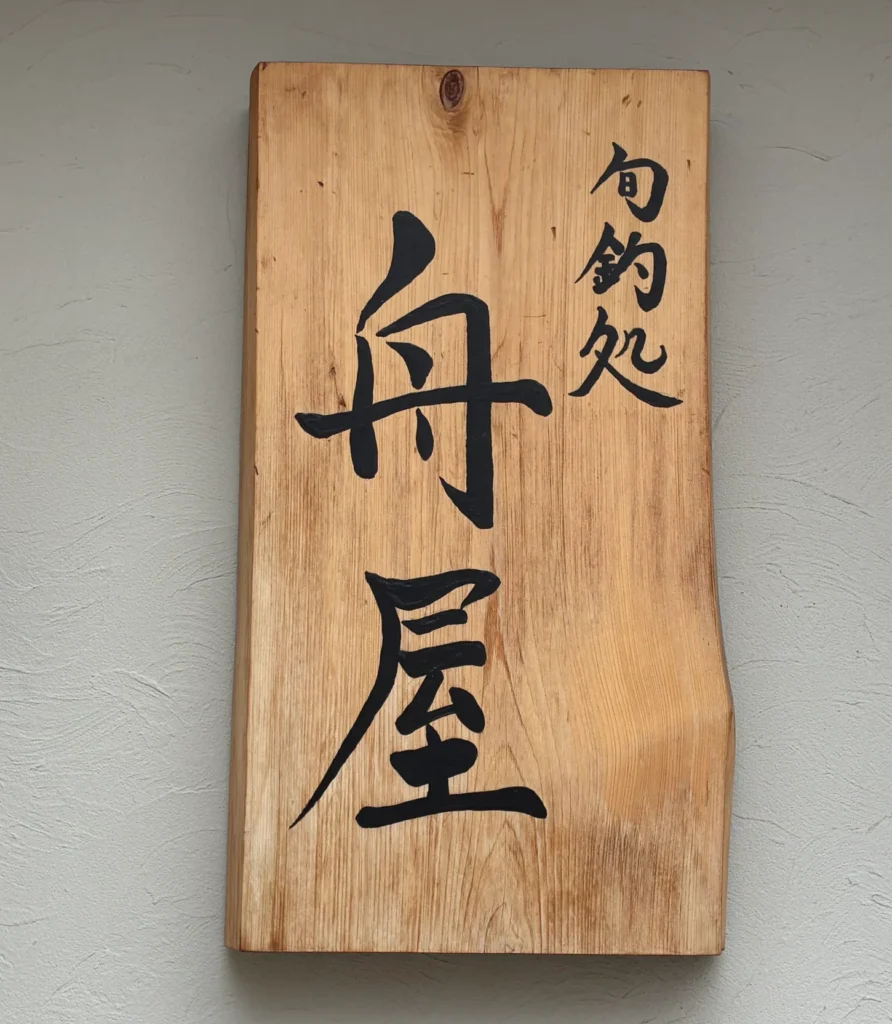 旬釣処
舟屋